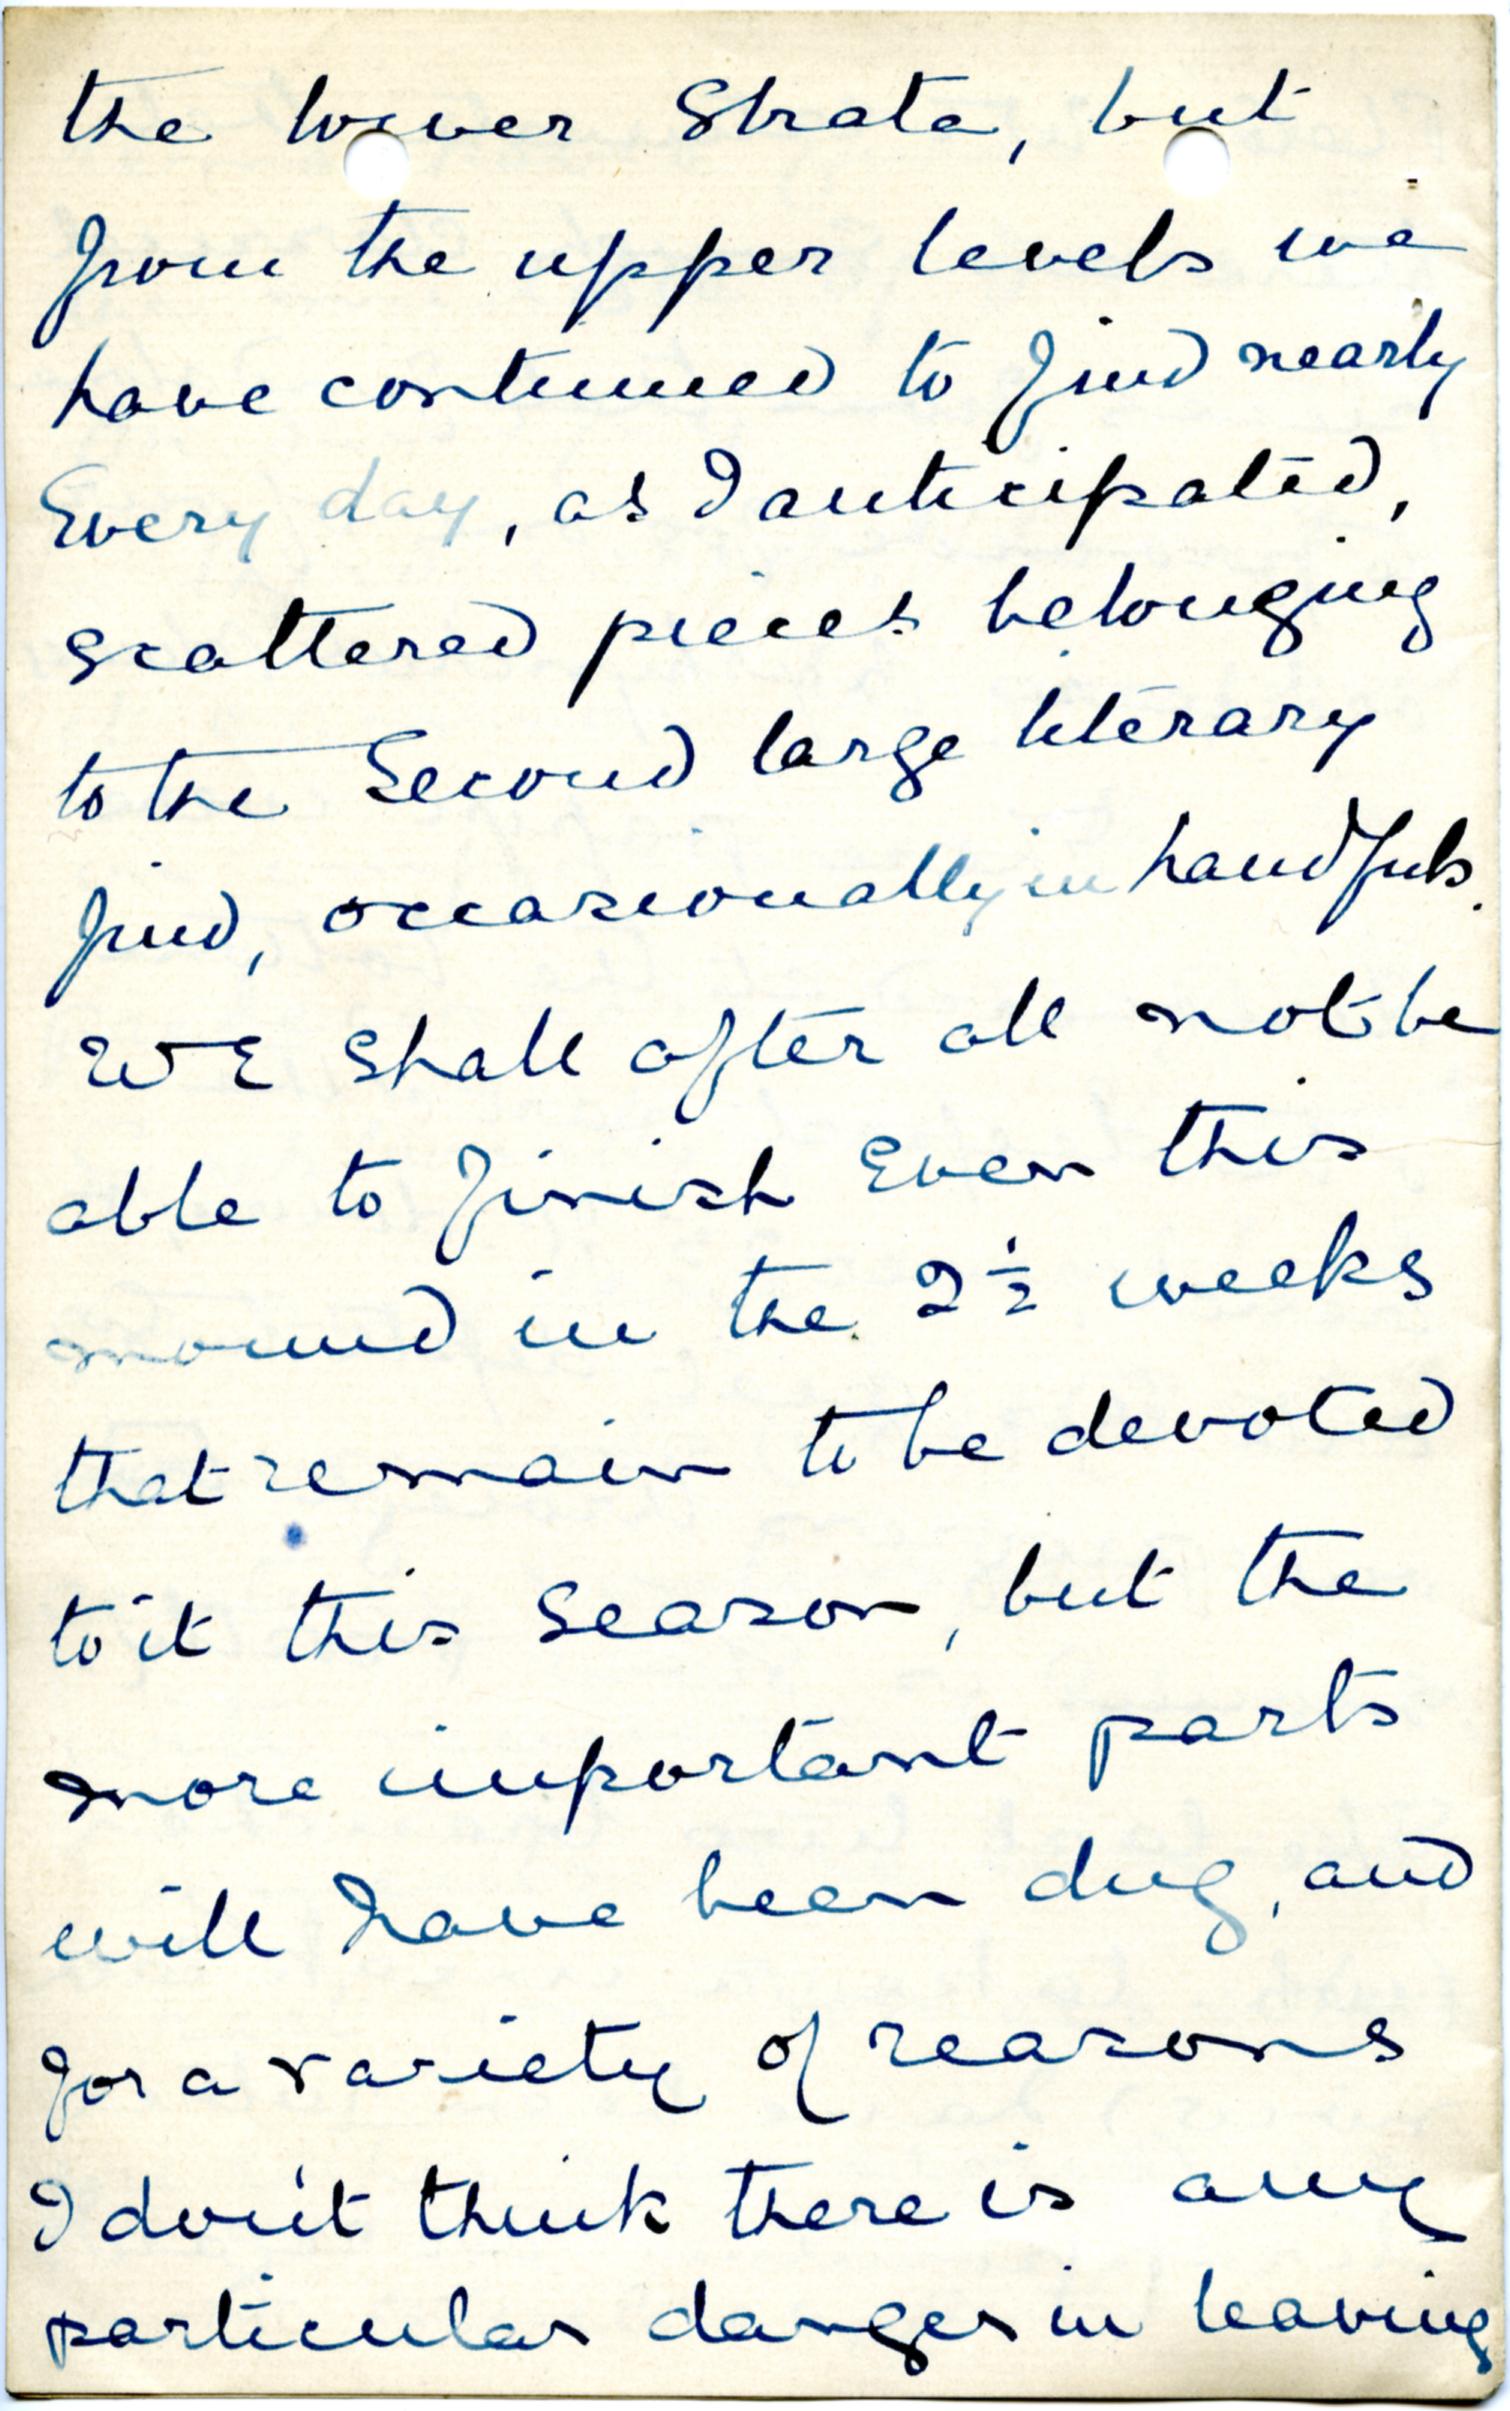 the lower Strata, but
from the upper levels we
have continued to find nearly
Every day, as I anticipated,
scattered pieces belonging
to the Second large literary
find, occasionally in handfuls.
We shall after all not be
able to finish Even this
mound in the 2½ weeks
that remain to be devoted
to it this Season, but the
more important parts
will have been dug, and
for a variety of reasons
I don't think there is any
particular danger in leaving